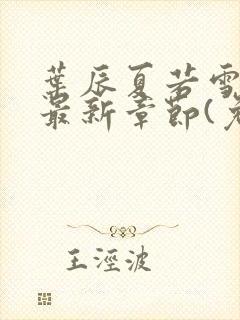 葉辰夏若雪
最新章節(免
王淫波